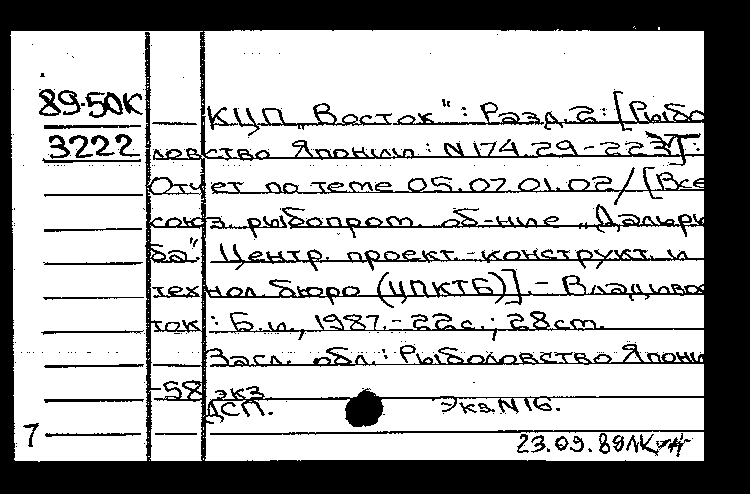 89-50К
3222
КЦП „Восток": Разд. 2: [Рыбо
ловство Японии: N 174.29-223]:
Отчет по теме 05.07.01.02/[Все
союз. рыбопром. об-ние „Дальры
ба" Центр. проект.-конструкт. и
технол. бюро (ЦПКТБ)].- Владивос
ток: Б.и., 1987.-22с.; 28см.
Засл. обл.: Рыболовство Япони
-58 экз
ДСП. Экз. N 16.
7
23.09.89